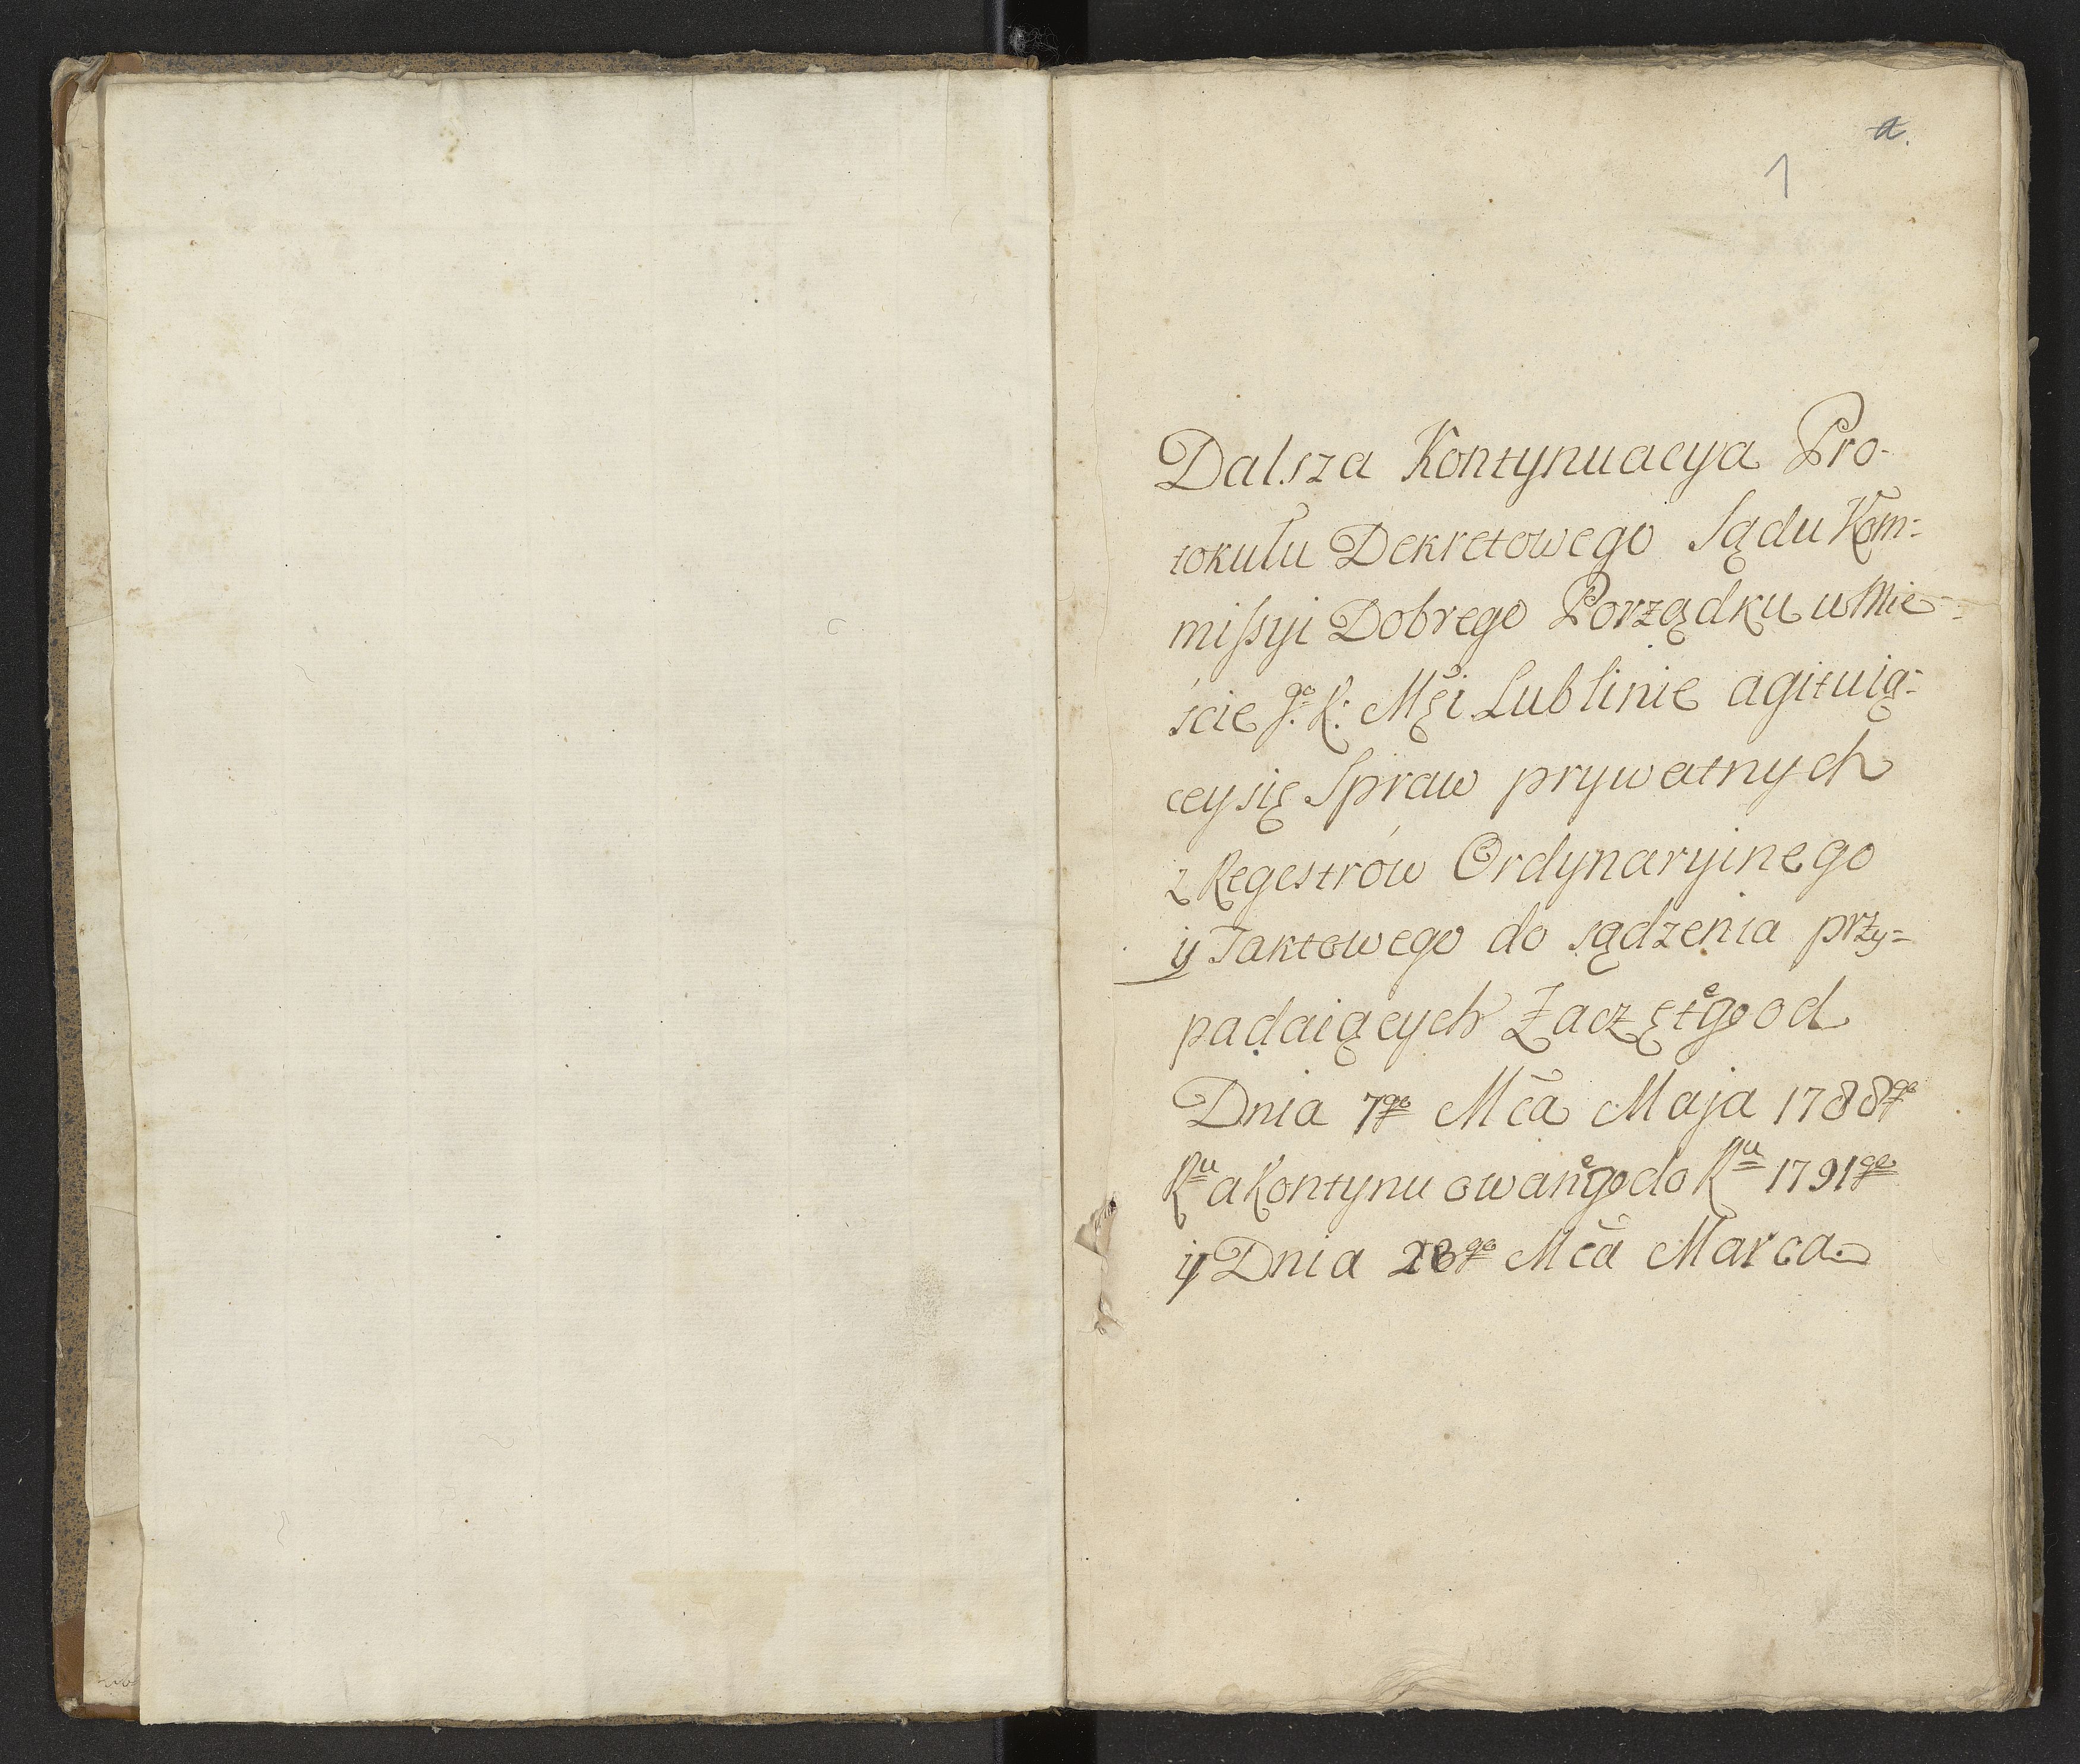 a.
1
Dalsza Kontynuacya Pro-
tokułu Dekretowego Sądu Kom=
missyi Dobrego Porządku w Mie=
ście J.º K: Mči Lublinie agituią=
cey się Spraw prywatnych
z Regestrów Ordynaryinego
y Taktowego do sądzenia przy=
padaiących Zaczętego od
Dnia 7go Mca Maja 1788go
Ru a Kontynuowanego do Ru 1791go
y Dnia 28go Mca Marca.